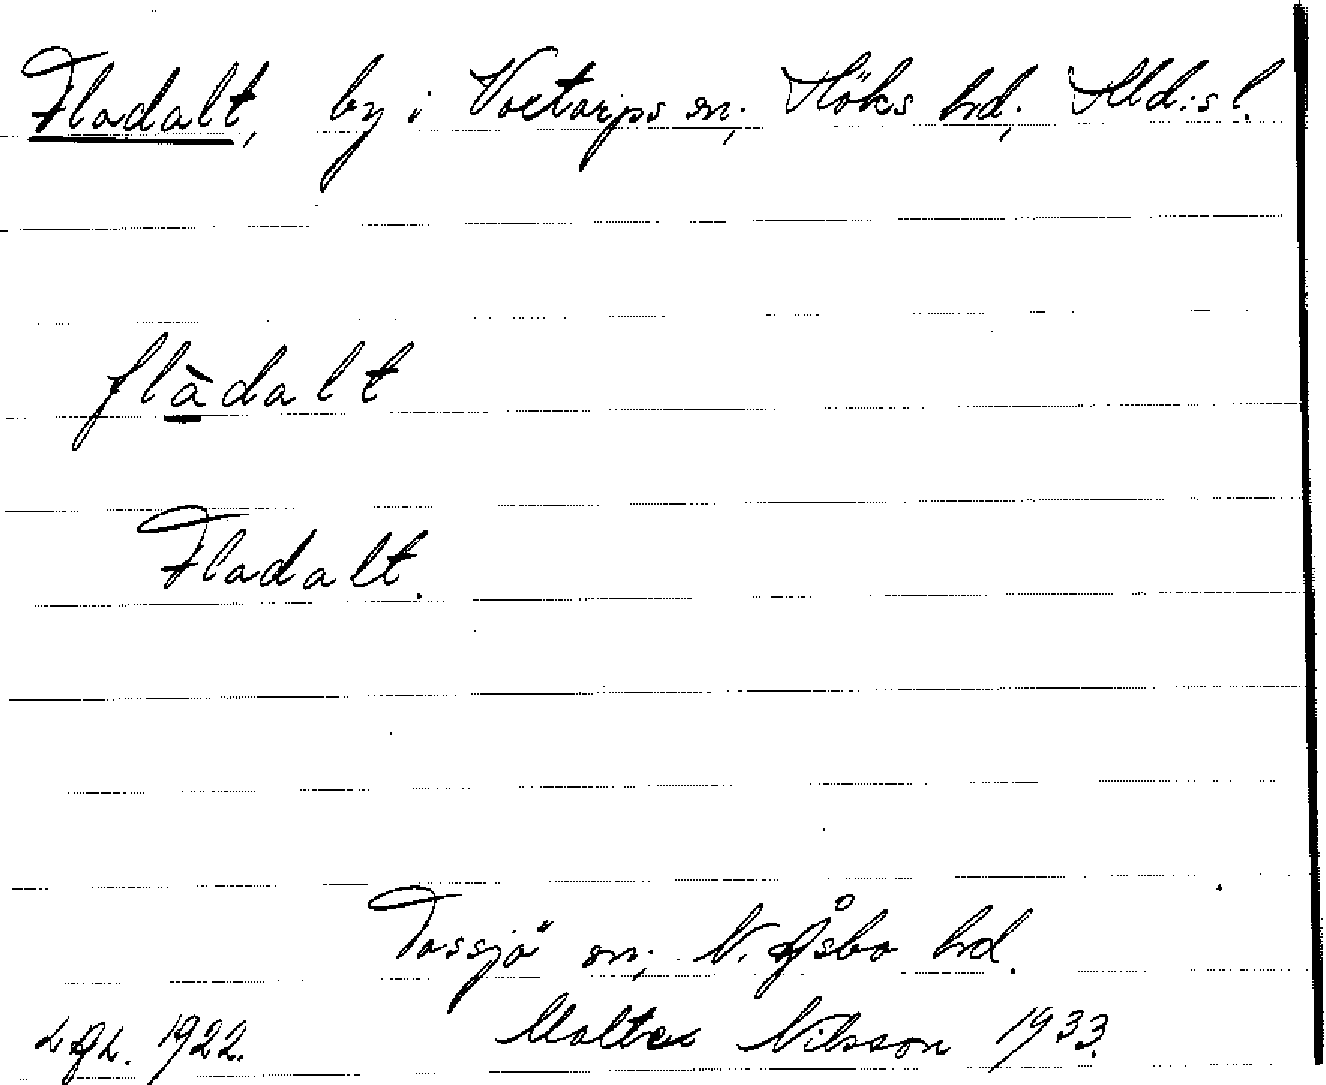 Fladalt, by i Voxtorps sn; Höks hd, Hld:s l.
flàdalt
Fladalt.
Tossjö sn; N. Åsbo hd.
1922. Malte Nilsson 1933.